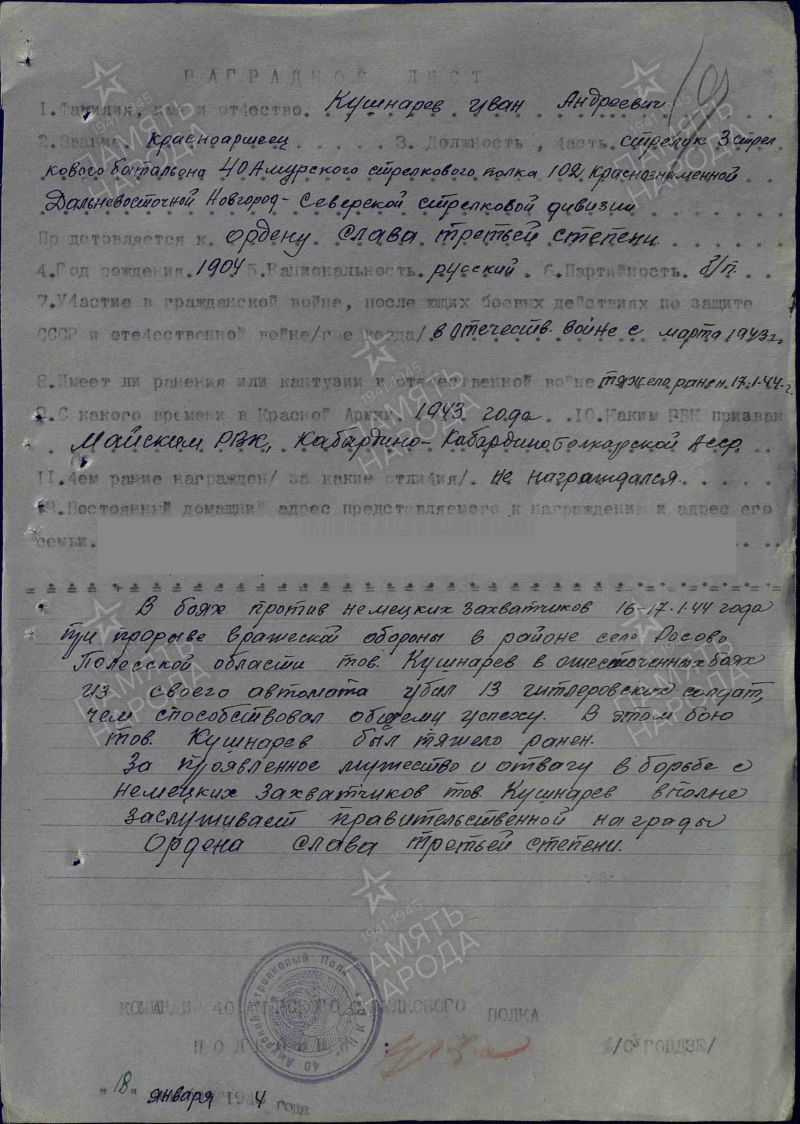 НАГРАДНОЙ ЛИСТ
1.Фамилия, имя и отчество. Кушнарев Иван Андреевич
2.Звание. красноармеец 3. Должность, часть. стрелок 3 стрел
кового батальона 40 Амурского стрелкового полка 102 Краснознаменной
Дальневосточной Новгород-Северской стрелковой дивизии
Представляется к. ордену Слава третьей степени
4.Год рождения. 1904 5.Национальность. русский. 6.Партийность. б/п.
7.Участие в гражданской войне, после ющих боевых действиях по защите
СССР и отечественной войне/где когда/ в отечеств. войне с марта 1943 г.
8.Имеет ли ранения или кантузии в отечественной войне тяжело ранен 17.1.44 г.
9.С какого времени в Красной Армии. 1943 года. 10.Каким РВК призван
Майским РВК, Кабардино-Кабардинобалкарской АССР
11.Чем ранее награжден/ за какие отличия/. не награждался
12.Постоянный домашний адрес представляемого к награждению и адрес его
семьи.
В боях против немецких захватчиков 16-17.1.44 года
при прорыве вражеской обороны в районе село
Полесской области тов. Кушнарев в ожесточенных боях
из своего автомата убил 13 гитлеровских солдат,
чем способствовал общему успеху. В этом бою
тов. Кушнарев был тяжело ранен.
За проявленное мужество и отвагу в борьбе с
немецких захватчиков тов Кушнарев вполне
заслуживает правительственной награды
Ордена Слава третьей степени.
40 Амурский Стрелковый Полк
КОМАНДИ 40 АМУРСКОГО СТРЕЛКОВОГО ПОЛКА
ПОЛК :
"18" января 1944 года
ПАМЯТЬ НАРОДА
1941-1945